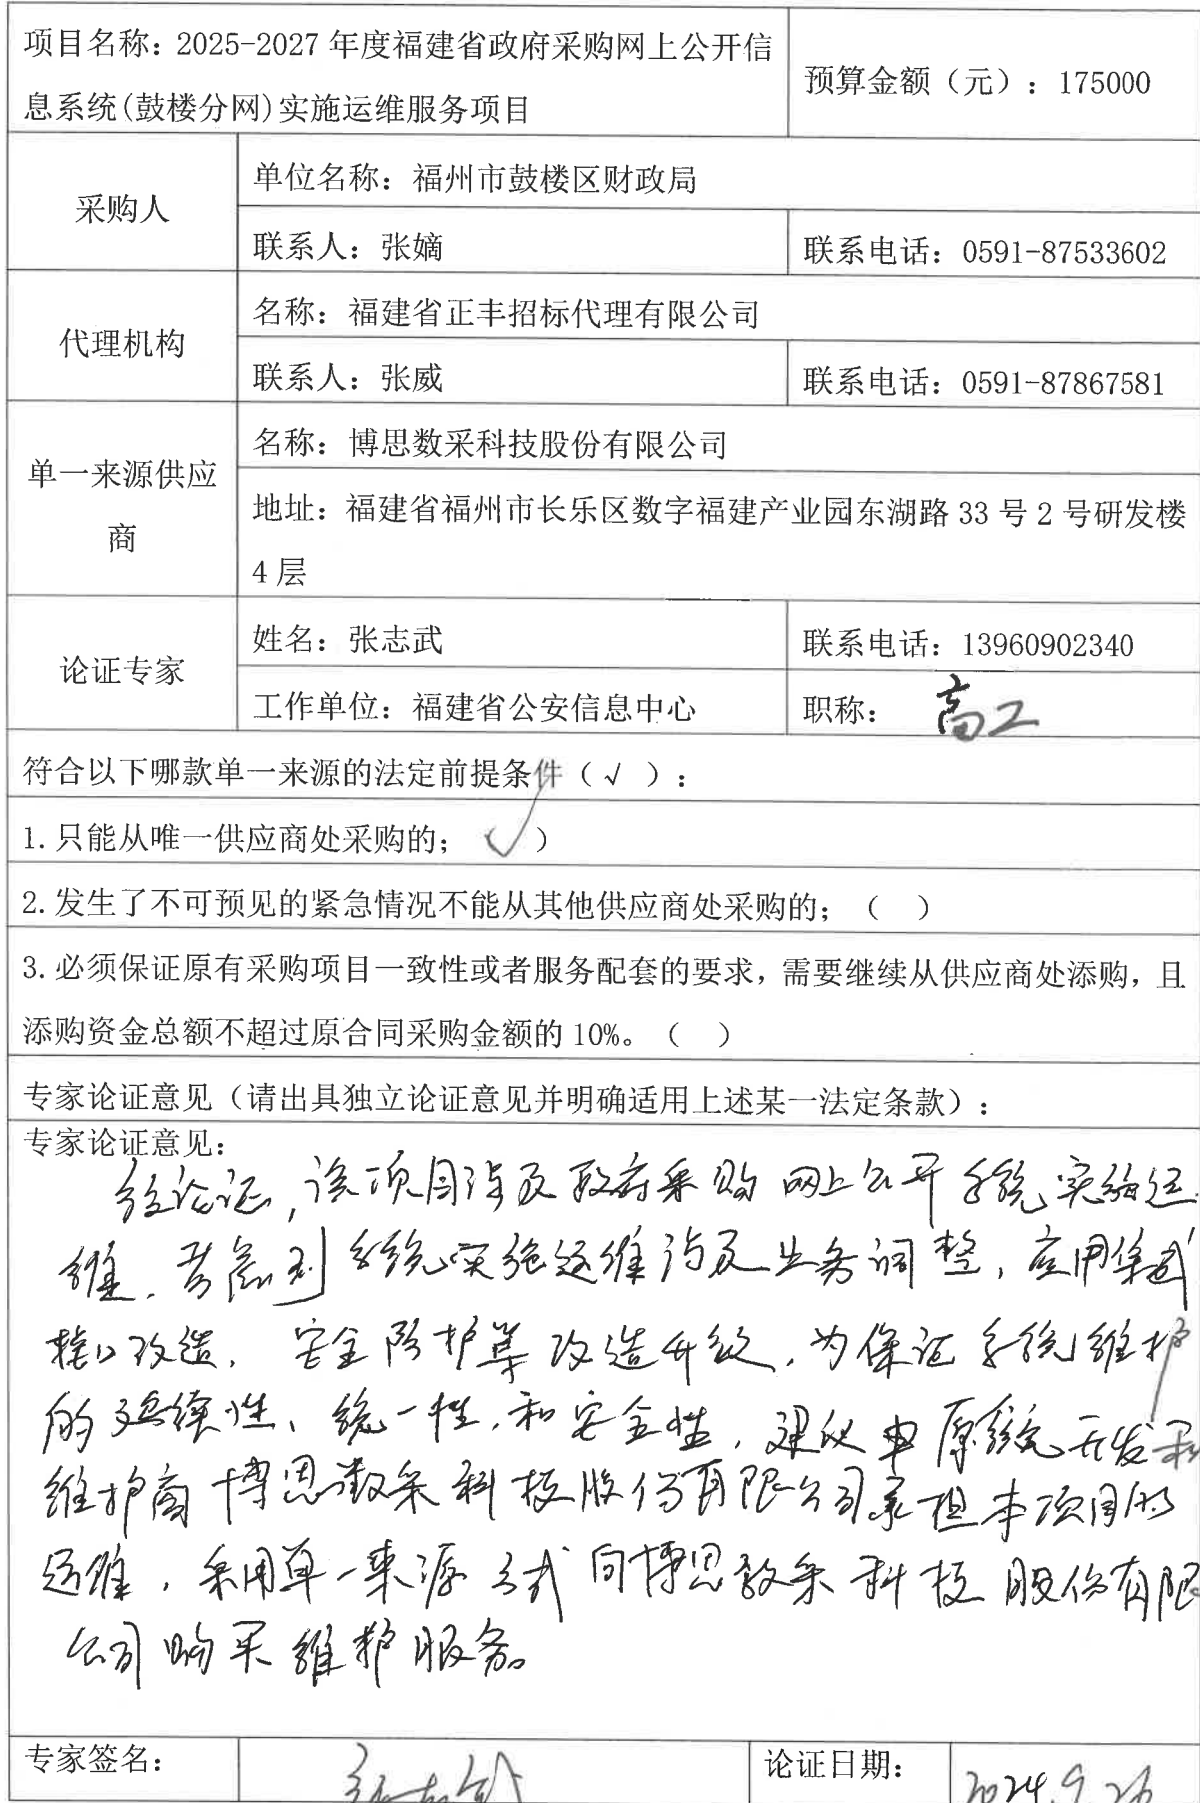 项目名称：2025-2027年度福建省政府采购网上公开信
息系统(鼓楼分网)实施运维服务项目
预算金额（元）：175000
采购人
单位名称：福州市鼓楼区财政局
联系人：张嫡
联系电话：0591-87533602
代理机构
名称：福建省正丰招标代理有限公司
联系人：张威
联系电话：0591-87867581
单一来源供应
商
名称：博思数采科技股份有限公司
地址：福建省福州市长乐区数字福建产业园东湖路33号2号研发楼
4层
论证专家
姓名：张志武
联系电话：13960902340
工作单位：福建省公安信息中心
职称：高工
符合以下哪款单一来源的法定前提条件（√ ）：
1.只能从唯一供应商处采购的；√）
2.发生了不可预见的紧急情况不能从其他供应商处采购的；（ ）
3.必须保证原有采购项目一致性或者服务配套的要求，需要继续从供应商处添购，且
添购资金总额不超过原合同采购金额的10%。（ ）
专家论证意见（请出具独立论证意见并明确适用上述某一法定条款）：
专家论证意见：
经论证，该项目涉及政府采购网上公开系统实施运
维，考虑到系统实施运维涉及业务调整，应用集成
接口改造，安全防护等改造升级，为保证系统维护
的延续性、统一性，和安全性，建议由原系统开发和
维护商博思数采科技股份有限公司承担本项目的
运维，采用单一来源方式向博思数采科技股份有限
公司购买维护服务。
专家签名：
张志武
论证日期：
2024.9.26